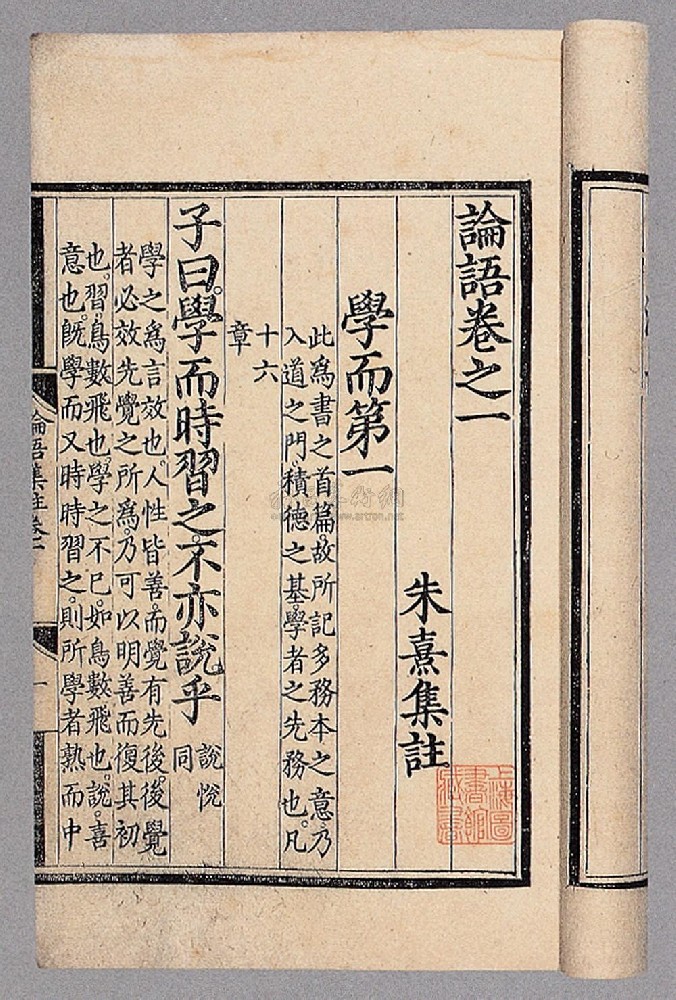 論語卷之一
朱熹集註
上海圖
書館
藏書
學而第一
此爲書之首篇。故所記多務本之意。乃
入道之門。積德之基。學者之先務也。凡
十六
章
子曰。學而時習之。不亦說乎
說悅
同
學之爲言效也。人性皆善。而覺有先後。後覺
者必效先覺之所爲。乃可以明善而復其初
也。習。鳥數飛也。學之不已。如鳥數飛也。說。喜
意也。旣學而又時時習之。則所學者熟。而中
論語集註卷一
一
www.artron.net